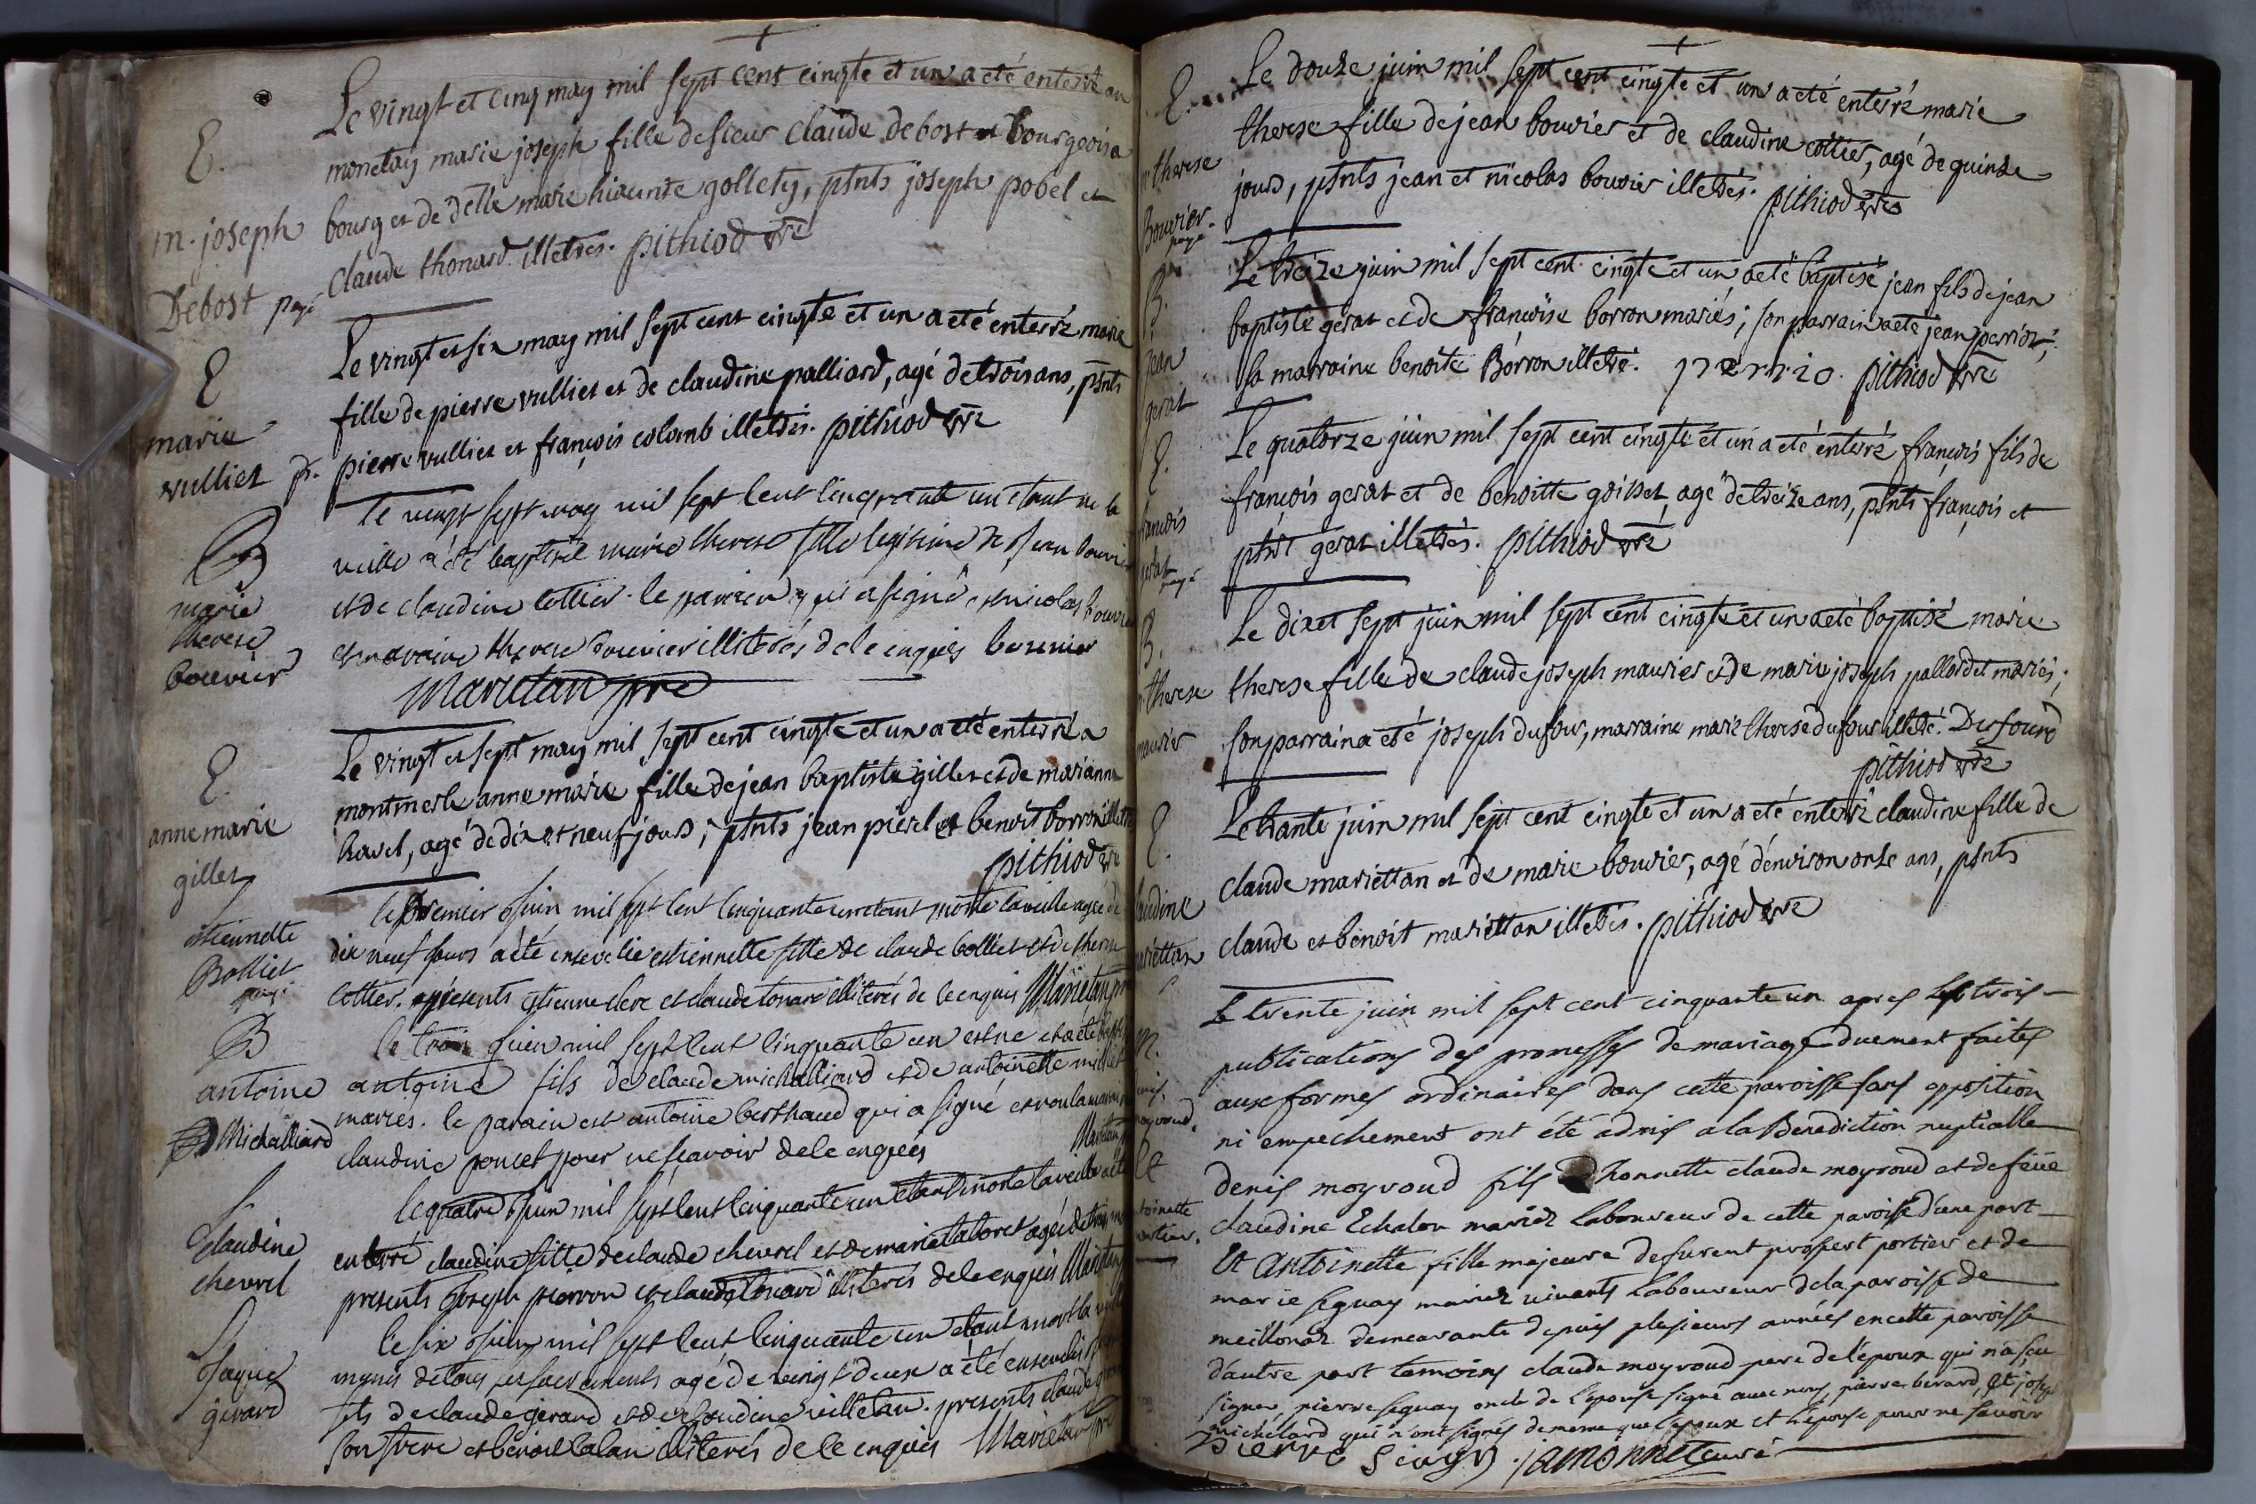 Le vingt et cinq may mil sept cent cinqte et un a eté enterré au
E.
monetay marie joseph fille de sieur claude debost bourgeois a
m. joseph
bourg et de delle marie hiacinte gollety, psnts joseph pobel et
Debost payé
claude thonard illetrés. pithiod vre
Le vingt et six may mil sept cent cinqte et un a eté enterré marie
E
fille de pierre vulliet et de claudine palliard, agé de trois ans, psnts
marie
vulliet p.
pierre vulliet et françois colomb illetrés. pithiod vre
le vingt sept may mil sept cent cinquante un etant né la
B
veille a été baptisée marie therese fille legitime de jean bouvier
marie
et de claudine cottier. le parrein qui a signé est nicolas bouvier
therese
et maraine therese bouvier illiterés de ce enquis bouvier
bouvier
Marietan pre
Le vingt et sept may mil sept cent cinqte et un a eté enterré a
E.
montmerle anne marie fille de jean baptiste gillet et de marianne
anne marie
ravet, agé de dix et neuf jours, psnts jean pierel et benoit borron illetrés
gillet
pithiod vre
le premier juin mil sept cent cinquante un etant morte la veille agée de
etiennette
dix neuf jours a été ensevelie etiennette fille de claude bolliet et de therese
Bolliet
payé
cottier. presents etienne clerc et claude tonard illiterés de ce enquis Marietan pre
B
le trois juin mil sept cent cinquante un est né et a été baptisé
antoine
antoine fils de claude michalliard et de antoinette millet
Michalliard
mariés. le parain est antoine berthaud qui a signé et non la maraine
claudine poncet pour ne scavoir de ce enquis Marietan
le quatre juin mil sept cent cinquante un etant morte la veille a été
claudine
enterré claudine fille de claude chevrel et de marie taboret agée de trois
chevrel
presents joseph pierron et claude tonard illiterés de ce enquis Marietan
le six juin mil sept cent cinquante un etant mort la veille
jaque
munis de tous ses sacrements agé de vingt deux a été enseveli
gerard
fils de claude gerard et de claudine villetan. presents claude
son frere et benoit lalan illiterés de ce enquis Marietan pre
Le douze juin mil sept cent cinqte et un a eté enterré marie
E.
therese fille de jean bouvier et de claudine cottier, agé de quinze
m. therese
jours, psnts jean et nicolas bouvier illetrés. pithiod vre
Bouvier
payé
Le treize juin mil sept cent cinqte et un a eté baptisé jean fils de jean
B.
baptiste gerat et de françoise borron mariés; son parrain a eté jean perriot;
jean
la marraine benoite Borron illetré. perrio. pithiod vre
gerat
Le quatorze juin mil sept cent cinqte et un a eté enterré françois fils de
E.
françois gerat et de benoitte goisset, agé de treize ans, psnts françois et
françois
gerat illetrés. pithiod vre
gerat payé
Le dix et sept juin mil sept cent cinqte et un a eté baptisé marie
B.
therese fille de claude joseph maurier et de marie joseph pallordet mariés;
m. therese
son parrain a eté joseph dufour, marraine marie therese dufour illetré. Dufourd
maurier
pithiod vre
Le trante juin mil sept cent cinqte et un a eté enterré claudine fille de
E.
claude mariettan et de marie bouvier, agé d'environ onze ans, psnts
claudine
claude et benoit mariettan illetrés. pithiod vre
mariettan
Le trente juin mil sept cent cinquante un apres les trois
publications des promesses de mariage duement faites
m.
aux formes ordinaires dans cette paroisse sans opposition
denis
ni empechement ont été admis a la Benediction nuptialle
moyroud.
denis moyroud fils d'honnette claude moyroud et de feüe
et
claudine Echalon mariéz laboureur de cette paroisse d'une part
antoinette
portier.
Et antoinette fille majeure de furent prosper portier et de
marie seguay mariez vivants laboureur de la paroisse de
meillonaz demeurante depuis plusieurs années en cette paroisse
d'autre part temoins claude moyroud pere de l'epoux qui n'a sçu
signer, pierre seguay oncle de l'epouse signé avec nous, pierre berard, et joseph
michélard qui n'ont signés de meme que l'epoux et l'épouse pour ne savoir
pierre seagy jamonnet curé